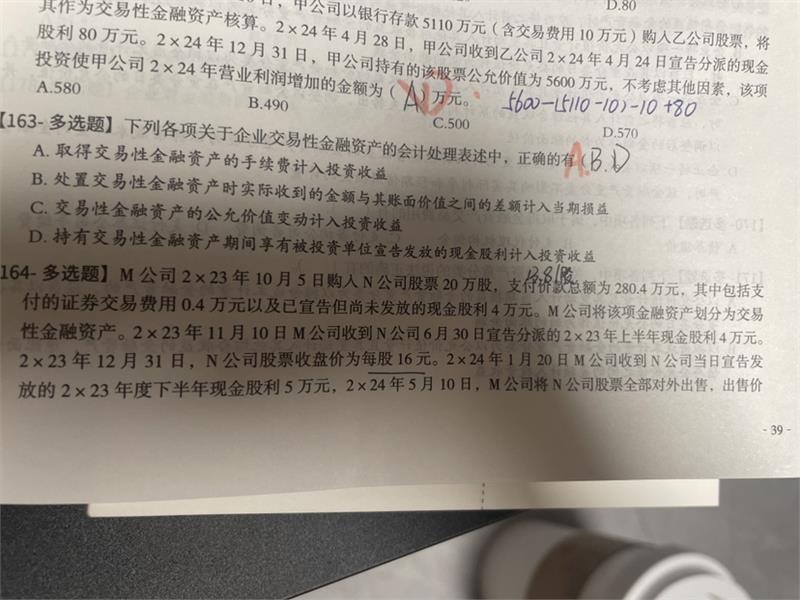 日，甲公司以银行存款 5110 万元（含交易费用 10 万元）购入乙公司股票，将
D.80
其作为交易性金融资产核算。2×24 年 4 月 28 日，甲公司收到乙公司 2×24 年 4 月 24 日宣告分派的现金
股利 80 万元。2×24 年 12 月 31 日，甲公司持有的该股票公允价值为 5600 万元，不考虑其他因素，该项
投资使甲公司 2×24 年营业利润增加的金额为（A）万元。
D
5600-(5110-10)-10+80
A.580
B.490
C.500
D.570
【163- 多选题】下列各项关于企业交易性金融资产的会计处理表述中，正确的有（A.B.D
A. 取得交易性金融资产的手续费计入投资收益
B. 处置交易性金融资产时实际收到的金额与其账面价值之间的差额计入当期损益
C. 交易性金融资产的公允价值变动计入投资收益
D. 持有交易性金融资产期间享有被投资单位宣告发放的现金股利计入投资收益
13.8/股
164- 多选题】M 公司 2×23 年 10 月 5 日购入 N 公司股票 20 万股，支付价款总额为 280.4 万元，其中包括支
付的证券交易费用 0.4 万元以及已宣告但尚未发放的现金股利 4 万元。M 公司将该项金融资产划分为交易
性金融资产。2×23 年 11 月 10 日 M 公司收到 N 公司 6 月 30 日宣告分派的 2×23 年上半年现金股利 4 万元。
2×23 年 12 月 31 日，N 公司股票收盘价为每股 16 元。2×24 年 1 月 20 日 M 公司收到 N 公司当日宣告发
放的 2×23 年度下半年现金股利 5 万元，2×24 年 5 月 10 日，M 公司将 N 公司股票全部对外出售，出售价
- 39 -